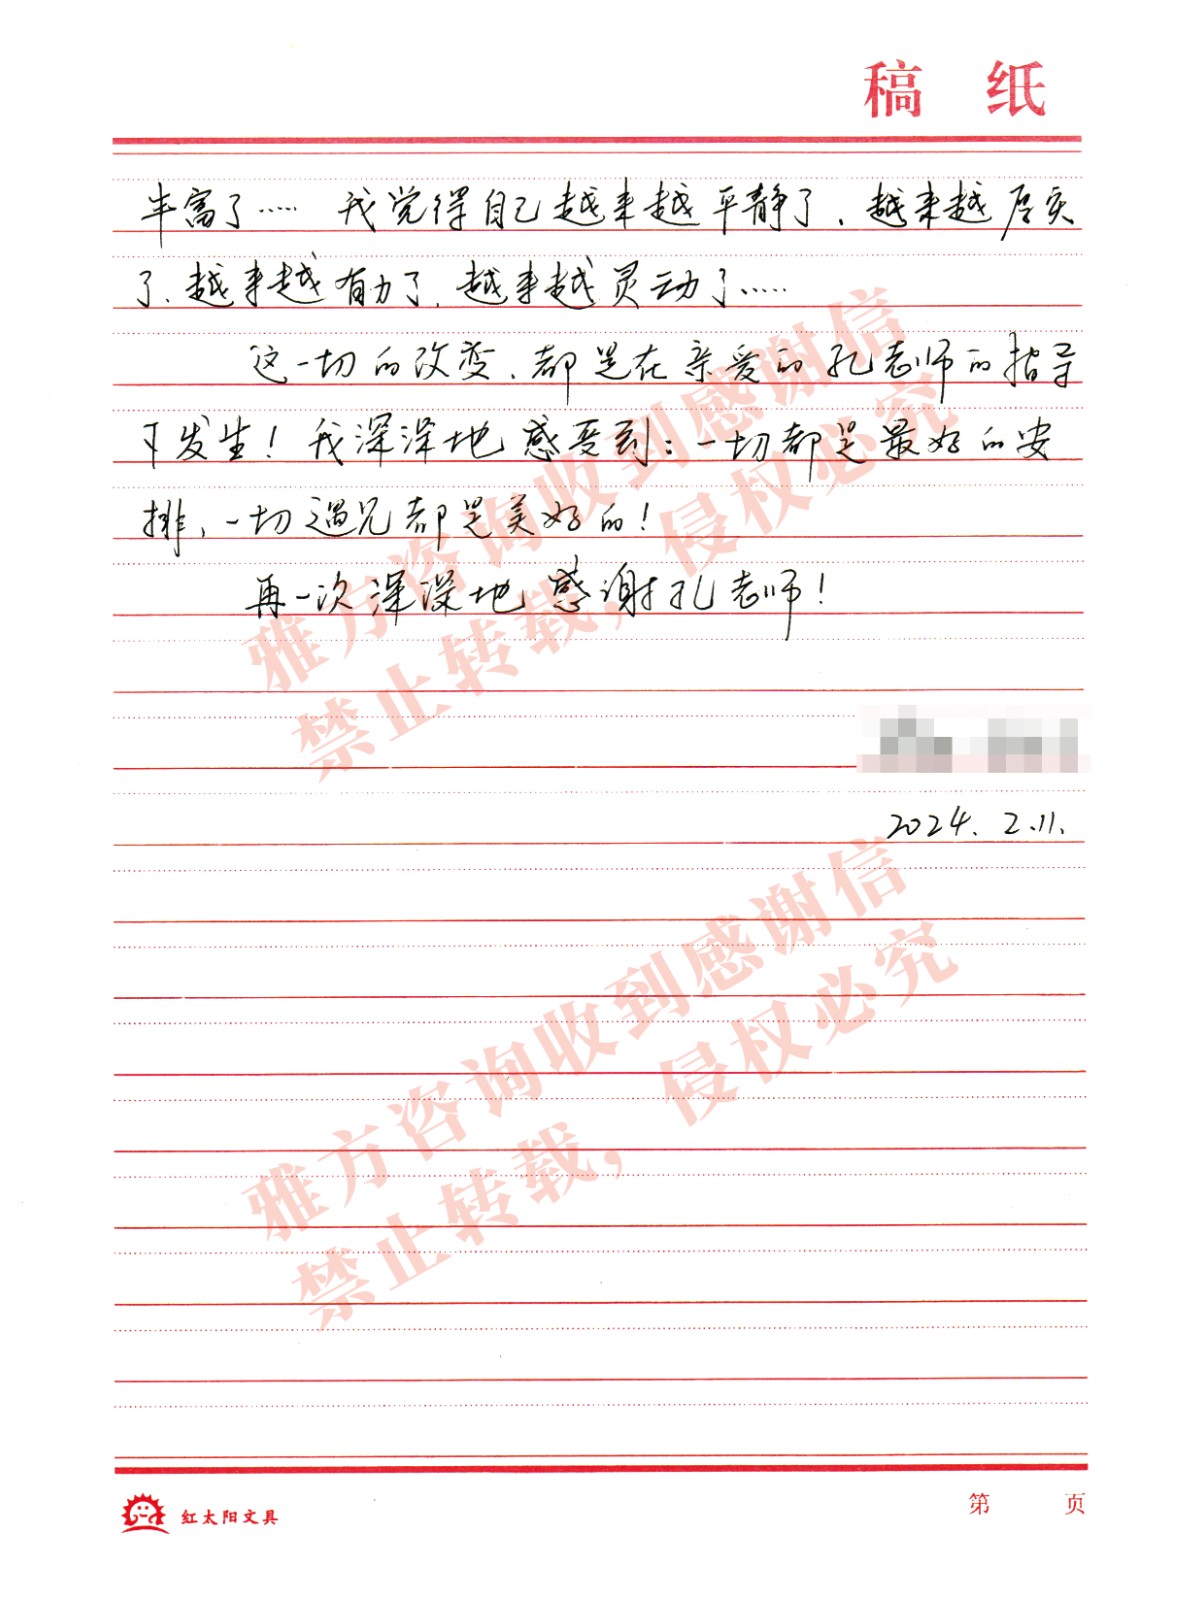 稿 纸
丰富了…… 我觉得自己越来越平静了、越来越厚实
了、越来越有力了、越来越灵动了……
这一切的改变、都是在亲爱的孔老师的指导
下发生！我深深地感受到：一切都是最好的安
排，一切遇见都是美好的！
再一次深深地感谢孔老师！
2024.2.11.
雅方咨询收到感谢信
禁止转载，侵权必究
雅方咨询收到感谢信
禁止转载，侵权必究
红太阳文具
第 页